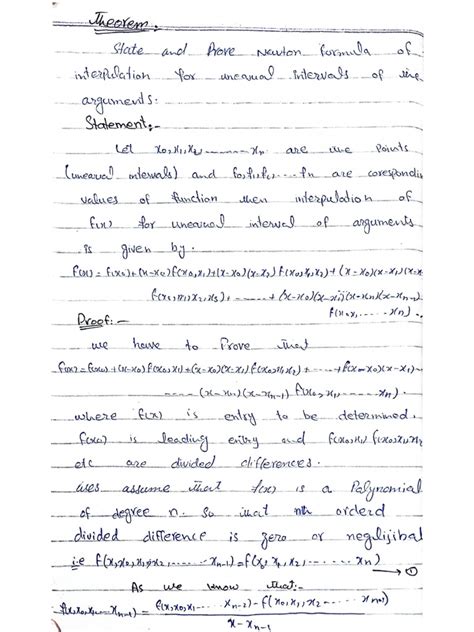 Theorem:
State and Prove Newton formula of
interpulation for unequal intervals of the
arguments:
Statement:-
Let x₀,x₁,x₂,-------xₙ are the points
(unequal intervals) and f₀,f₁,f₂,---fₙ are coresponding
values of function then interpulation of
f(x) for unequal interval of arguments
is given by.
f(x) = f(x₀)+(x-x₀)f(x₀,x₁)+(x-x₀)(x-x₁)f(x₀,x₁,x₂)+(x-x₀)(x-x₁)(x-x₂
f(x₀,x₁,x₂,x₃),-----+(x-x₀)(x-x₁)(x-xₙ)(x-xₙ₋₁).
f(x₀,x₁-----xₙ).
Proof:-
we have to Prove that
f(x)=f(x₀)+(x-x₀)f(x₀,x₁)+(x-x₀)(x-x₁)f(x₀,x₁,x₂)+----+f(x-x₀)(x-x₁)-
----(x-xₙ)(x-xₙ₋₁) f(x₀,x₁-----xₙ).
where f(x) is entry to be determined.
f(x₀) is leading entry and f(x₀,x₁) f(x₀,x₁,x₂
etc are divided differences.
assume that f(x) is a Polynomial
of degree n. so that nth orderd
divided difference is zero or neglijibal
i.e f(x,x₀,x₁,x₂-----xₙ₋₁)=f(x₀,x₁,x₂,----xₙ) →①
As we know that:-
f(x,x₀,x₁----xₙ₋₁)=f(x,x₀,x₁---xₙ₋₂)-f(x₀,x₁,x₂----xₙ₋₁)
x-xₙ₋₁